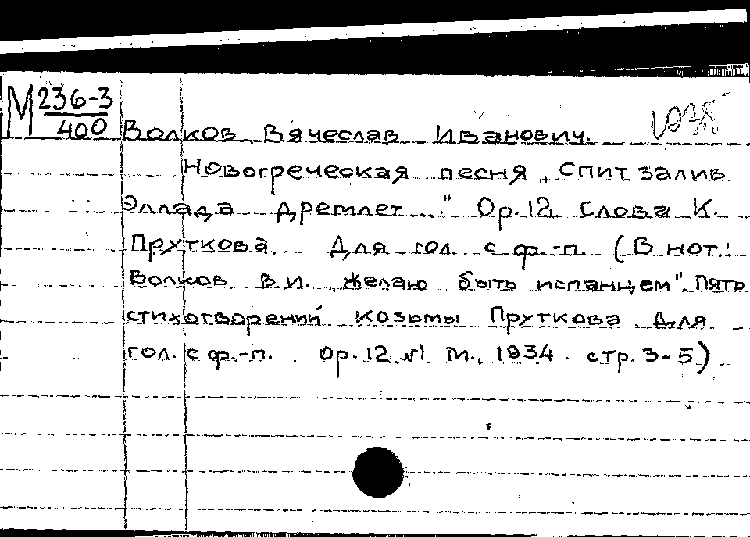 М 236-3
400
Волков Вячеслав Иванович.
Новогреческая песня „Спит залив
Эллада дремлет..." Ор.12 Слова К.
Пруткова. Для гол. с ф.-п. (В нот.:
Волков В.И. „Желаю быть испанцем". Пять
стихотворений Козьмы Пруткова для
гол. с ф.-п. Ор.12 №1 М., 1934. стр. 3-5)